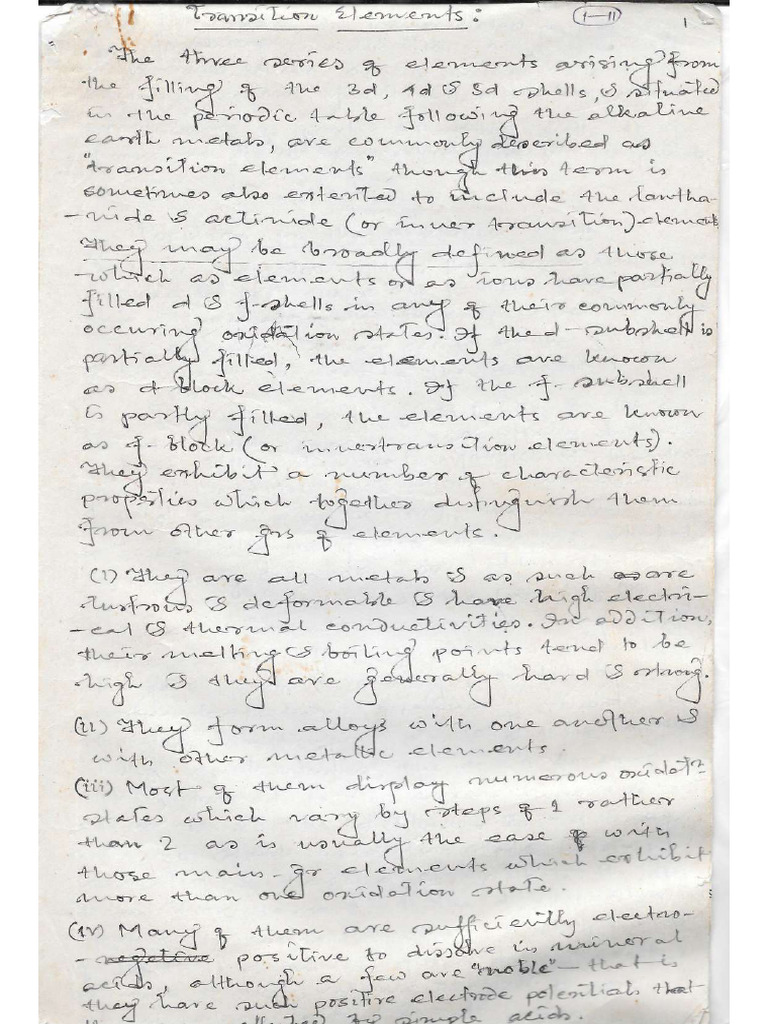 Transition Elements:
1-11
1
The three series of elements arising from
the filling of the 3d, 4d & 5d shells, & situated
in the periodic table following the alkaline
earth metals, are commonly described as
"transition elements" though this term is
sometimes also extented to include the lantha-
-nide & actinide (or inner transition) element
They may be broadly defined as those
which as elements or as ions have partially
filled d & f-shells in any of their commonly
occuring oxidation states. If the d-subshell is
partially filled, the elements are known
as d block elements. If the f-subshell
is partly filled, the elements are known
as f-block (or innertransition elements).
They exhibit a number of characteristic
properties which together distinguish them
from other grs of elements.
(i) They are all metals & as such are
lustrous & deformable & have high electri-
-cal & thermal conductivities. In addition,
their melting & boiling points tend to be
high & they are generally hard & strong.
(ii) They form alloys with one another &
with other metallic elements.
(iii) Most of them display numerous oxidatn
states which vary by steps of 1 rather
than 2 as is usually the case with
those main-gr elements which exhibit
more than one oxidation state.
(iv) Many of them are sufficiently electro-
-negative positive to dissolve in mineral
acids, although a few are "noble" - that is
they have such positive electrode potentials that
by simple acids.